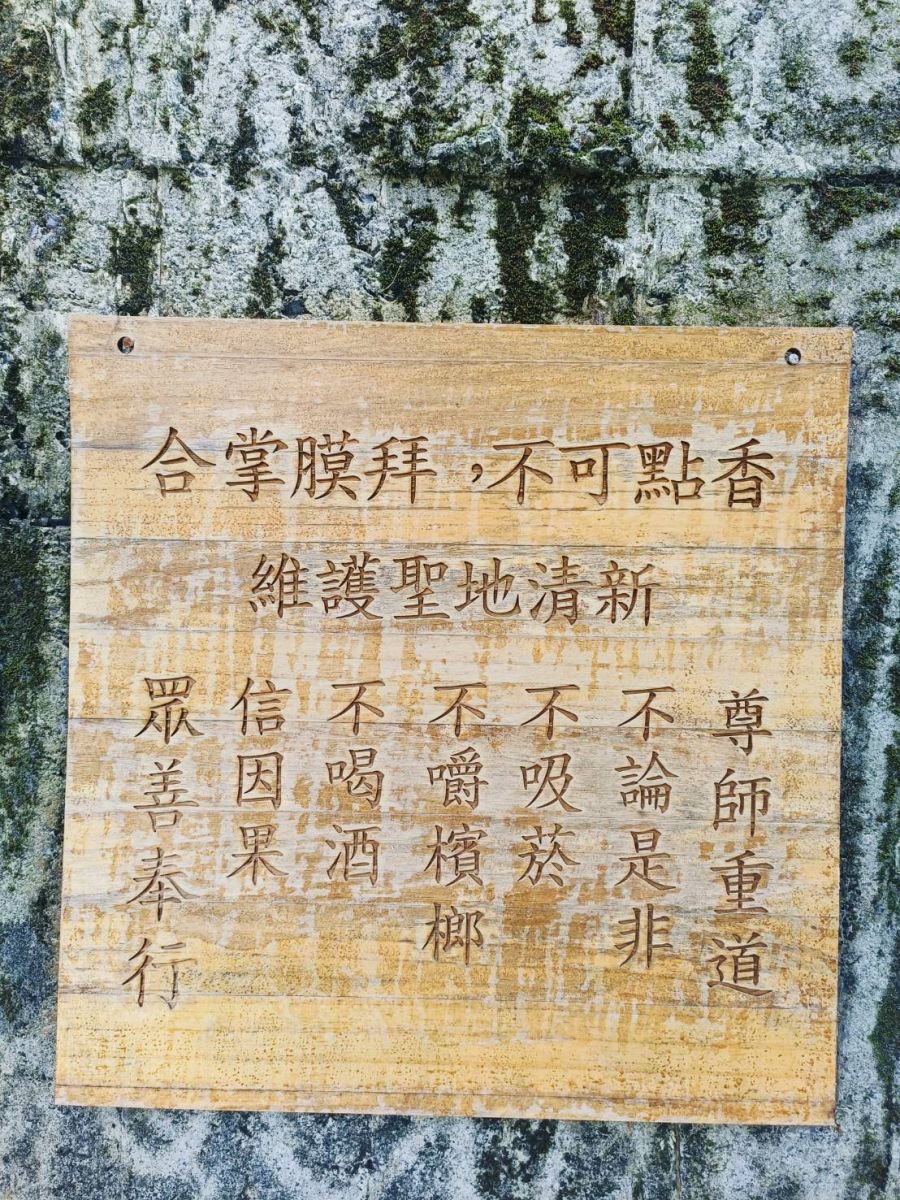 合掌膜拜,不可點香
維護聖地清新
尊師重道
不論是非
不吸菸
不嚼檳榔
不喝酒
信因果
眾善奉行